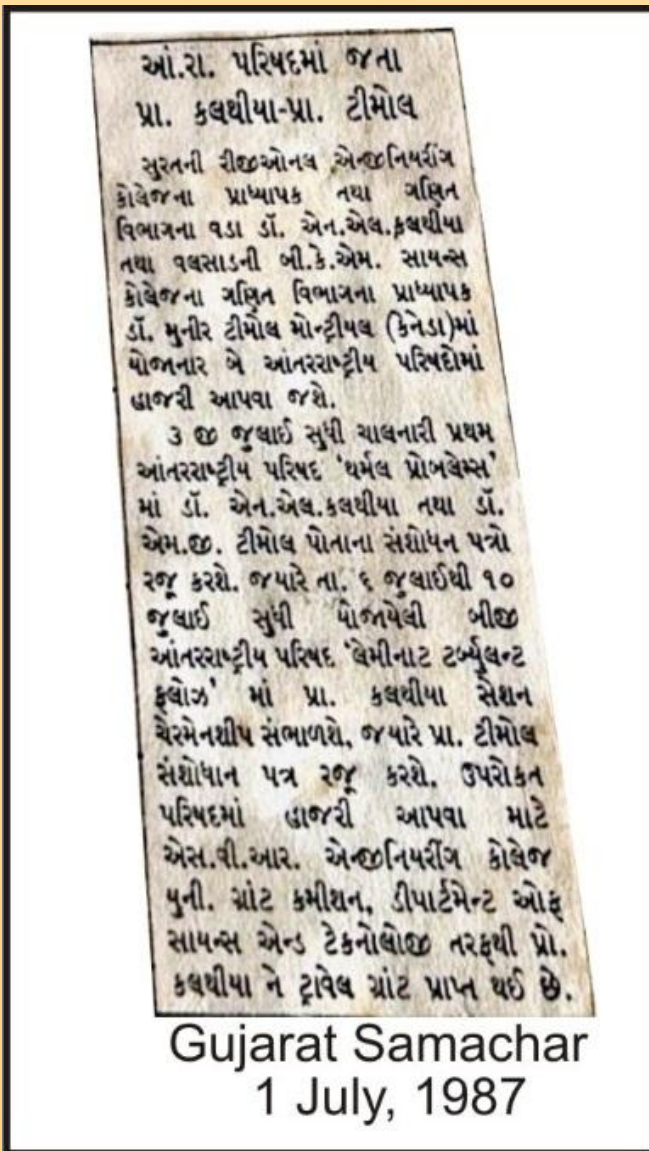 આં.રા. પરિષદમાં જતા
પ્રા. કલથીયા-પ્રા. ટીમોલ
સુરતની રીજીઓનલ એન્જીનિયરીંગ
કોલેજના પ્રાધ્યાપક તથા ગણિત
વિભાગના વડા ડૉ. એન.એલ.કલથીયા
તથા વલસાડની બી.કે.એમ. સાયન્સ
કોલેજના ગણિત વિભાગના પ્રાધ્યાપક
ડૉ. મુનીર ટીમોલ મોન્ટ્રીયલ (કેનેડા)માં
યોજાનાર બે આંતરરાષ્ટ્રીય પરિષદોમાં
હાજરી આપવા જશે.
૩ જી જુલાઈ સુધી ચાલનારી પ્રથમ
આંતરરાષ્ટ્રીય પરિષદ 'થર્મલ પ્રોબલેમ્સ'
માં ડૉ. એન.એલ.કલથીયા તથા ડૉ.
એમ.જી. ટીમોલ પોતાના સંશોધન પત્રો
રજૂ કરશે. જયારે તા. ૬ જુલાઈથી ૧૦
જુલાઈ સુધી યોજાયેલી બીજી
આંતરરાષ્ટ્રીય પરિષદ 'લેમીનાટ ટર્બ્યુલન્ટ
ફ્લોઝ' માં પ્રા. કલથીયા સેશન
ચેરમેનશીપ સંભાળશે, જયારે પ્રા. ટીમોલ
સંશોધાન પત્ર રજૂ કરશે. ઉપરોકત
પરિષદમાં હાજરી આપવા માટે
એસ.વી.આર. એન્જીનિયરીંગ કોલેજ
યુની. ગ્રાંટ કમીશન, ડીપાર્ટમેન્ટ ઓફ
સાયન્સ એન્ડ ટેકનોલોજી તરફથી પ્રો.
કલથીયા ને ટ્રાવેલ ગ્રાંટ પ્રાપ્ત થઈ છે.
Gujarat Samachar
1 July, 1987